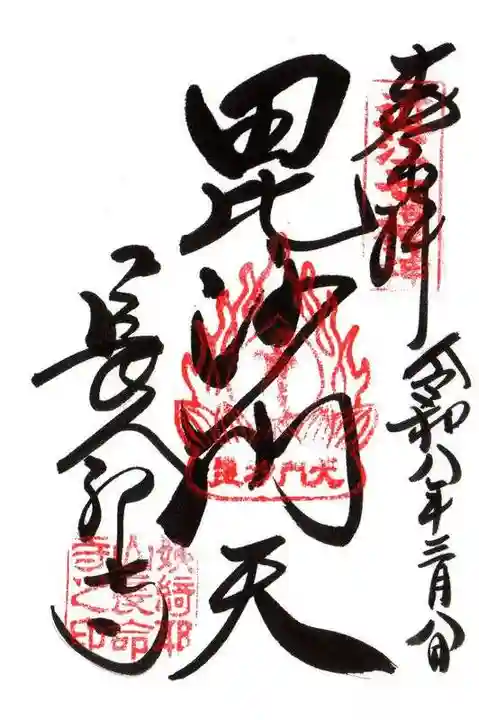 奉拝
令和八年三月八日
毘沙門天
毘沙門天
長命寺
姨綺耶
山長命
寺之印